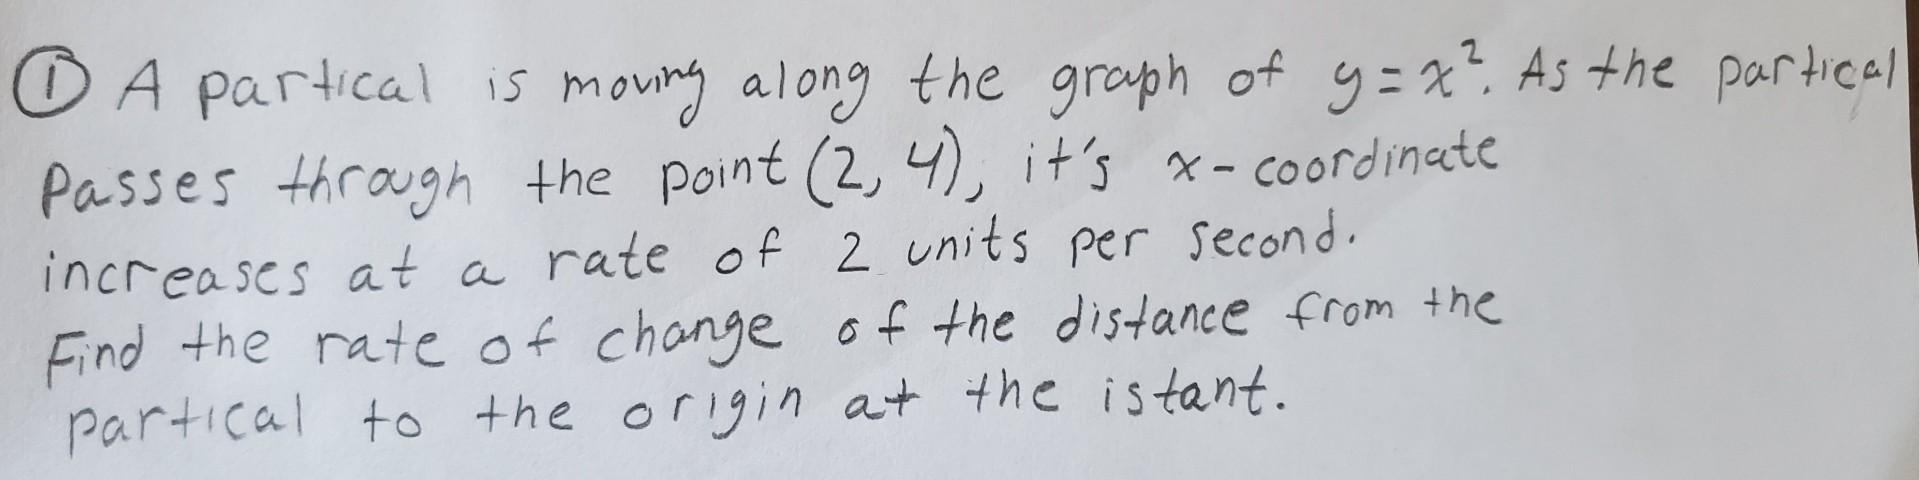 ① A partical is moving along the graph of y = x². As the partical
Passes through the point (2, 4), it's x-coordinate
increases at a rate of 2 units per second.
Find the rate of change of the distance from the
partical to the origin at the istant.